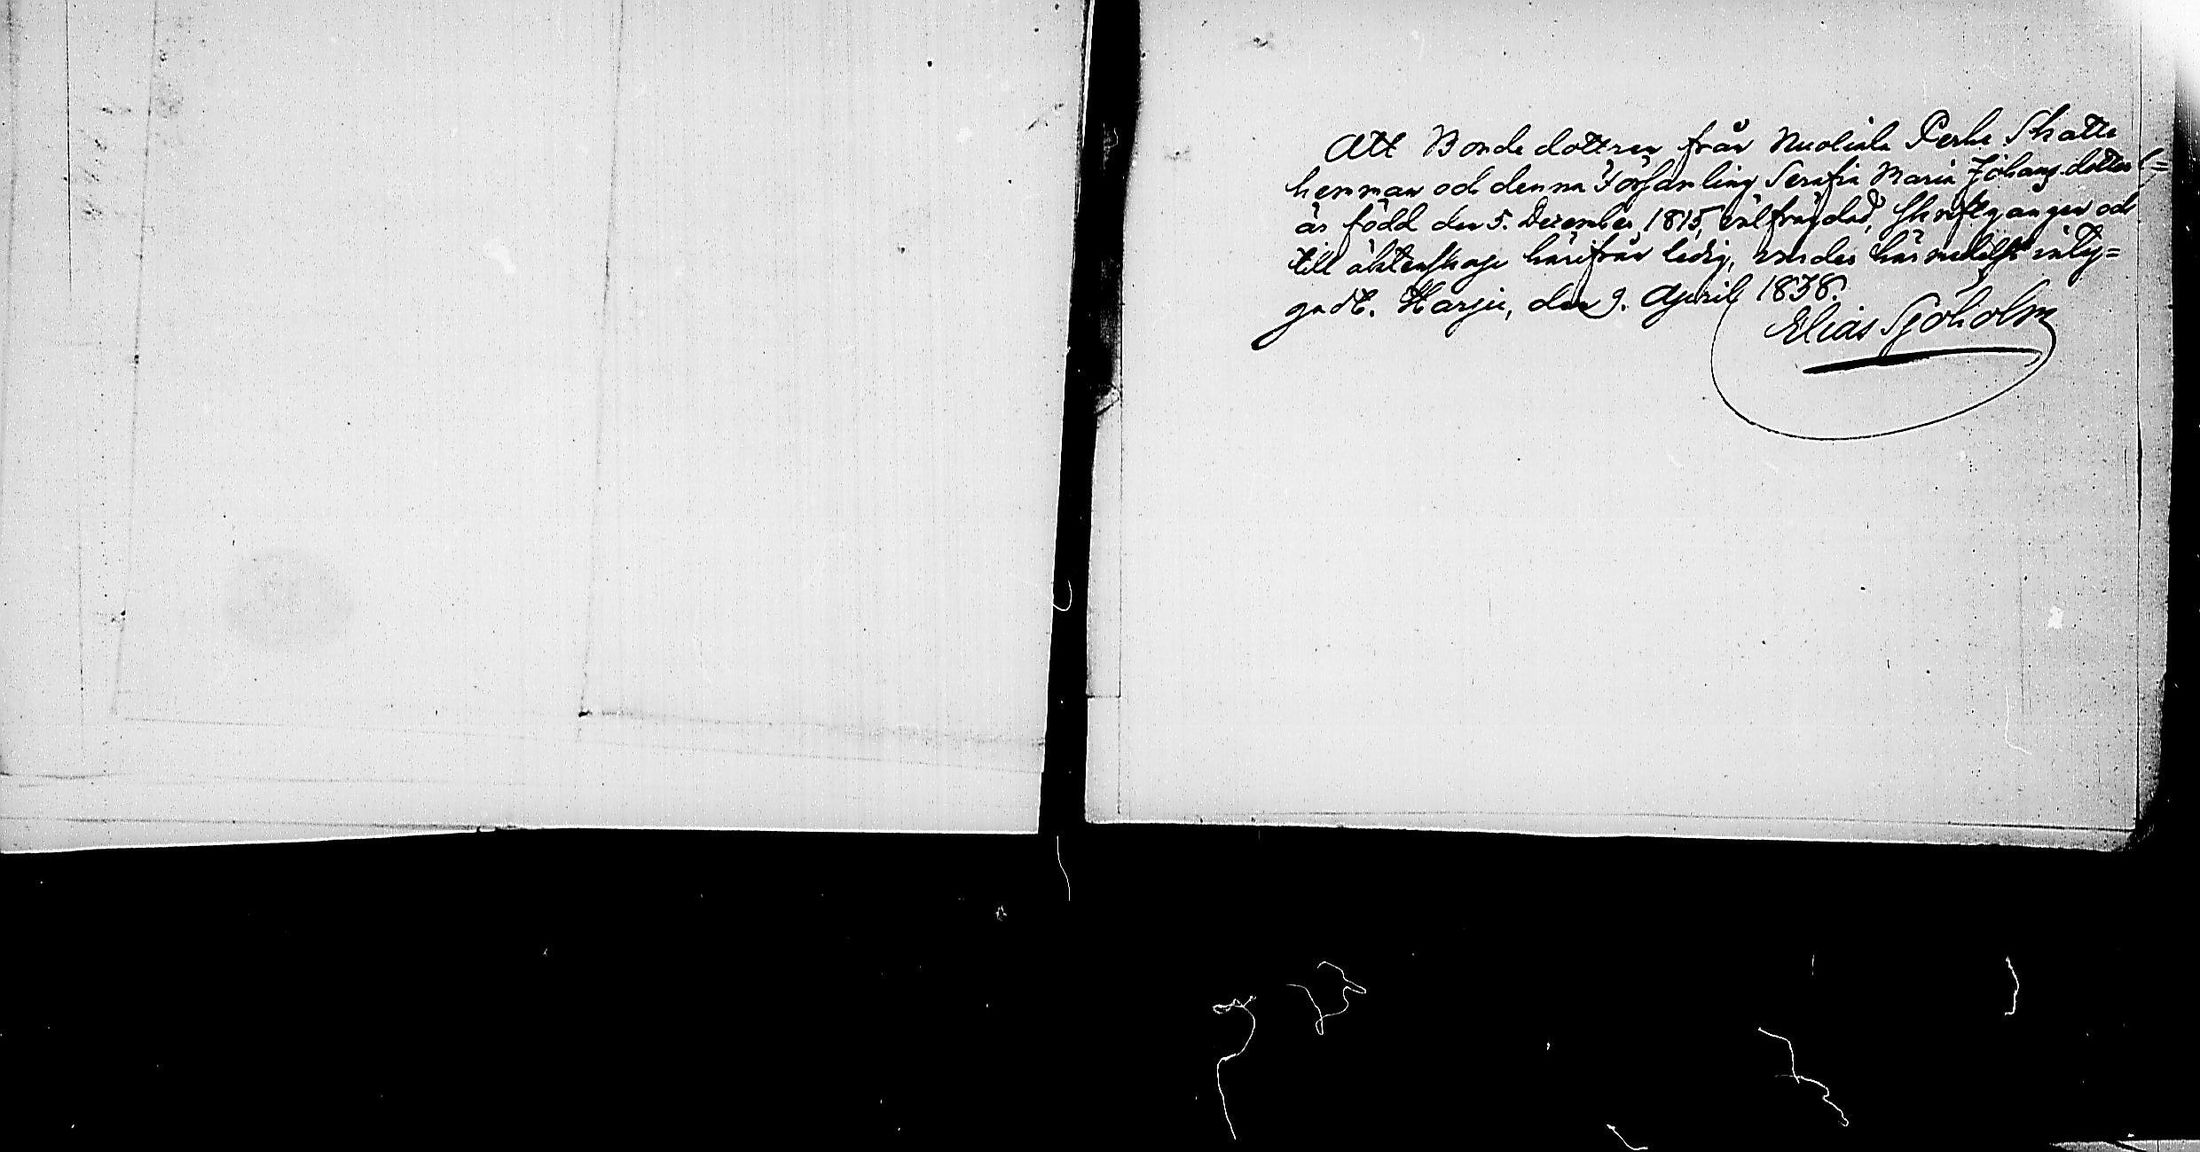 Att Bondedottren från Nuoliala Perhe Skatte
hemman och denna Församling Serafia Maria Johansdotter
är född den 5. December 1815, välfräjdad, skriftgången och
till äktenskap härifrån ledig, varder härmedelst inty=
gadt. Harju, den 9. April 1838.
Elias Sjöholm